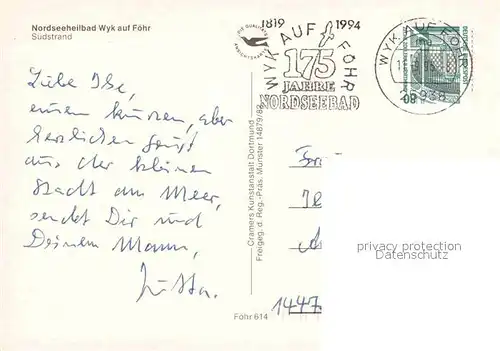 Nordseeheilbad Wyk auf Föhr
Südstrand
1819 1994
WYK AUF FÖHR
175
JAHRE
NORDSEEBAD
WYK AUF FÖHR
25938
08
DEUTSCHE BUNDESPOST
Liebe Ilse,
einen kurzen, aber
herzlichen Gruß
aus der kleinen
Stadt am Meer,
sendet Dir und
Deinem Mann,
Jutta.
Cramers Kunstanstalt Dortmund
Freigeg. d. Reg.-Präs. Münster 14879/82
Föhr 614
1447
privacy protection
Datenschutz